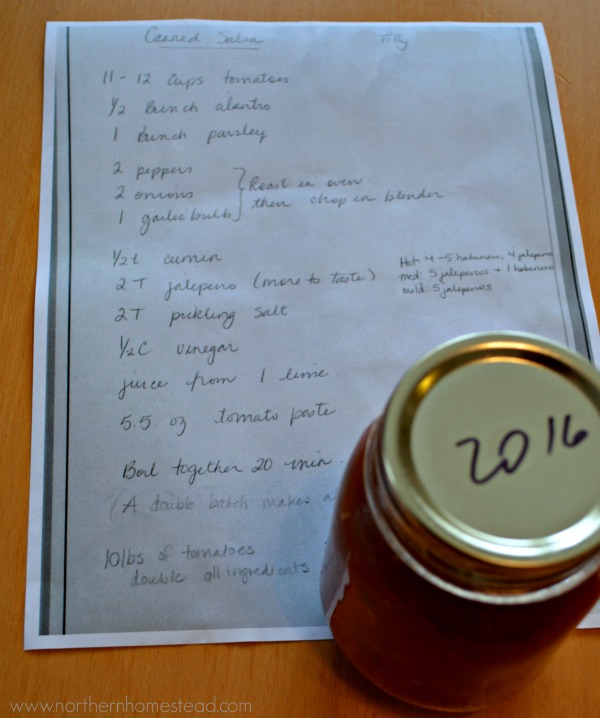 Canned Salsa Tilly
11 - 12 cups tomatoes
1/2 Bunch cilantro
1 Bunch parsley
2 peppers
2 onions
1 garlic bulb
Roast in oven
then chop in blender
1/2 t cumin
2 T jalepeno (more to taste)
Hot: 4-5 habenero, 4 jalepeno
med: 5 jalepenos + 1 habenero
mild: 5 jalepenos
2T pickling salt
1/2 C vinegar
juice from 1 lime
5.5 oz tomato paste
Boil together 20 min.
(A double batch makes a
10lbs of tomatoes
double all ingredients
2016
www.northernhomestead.com